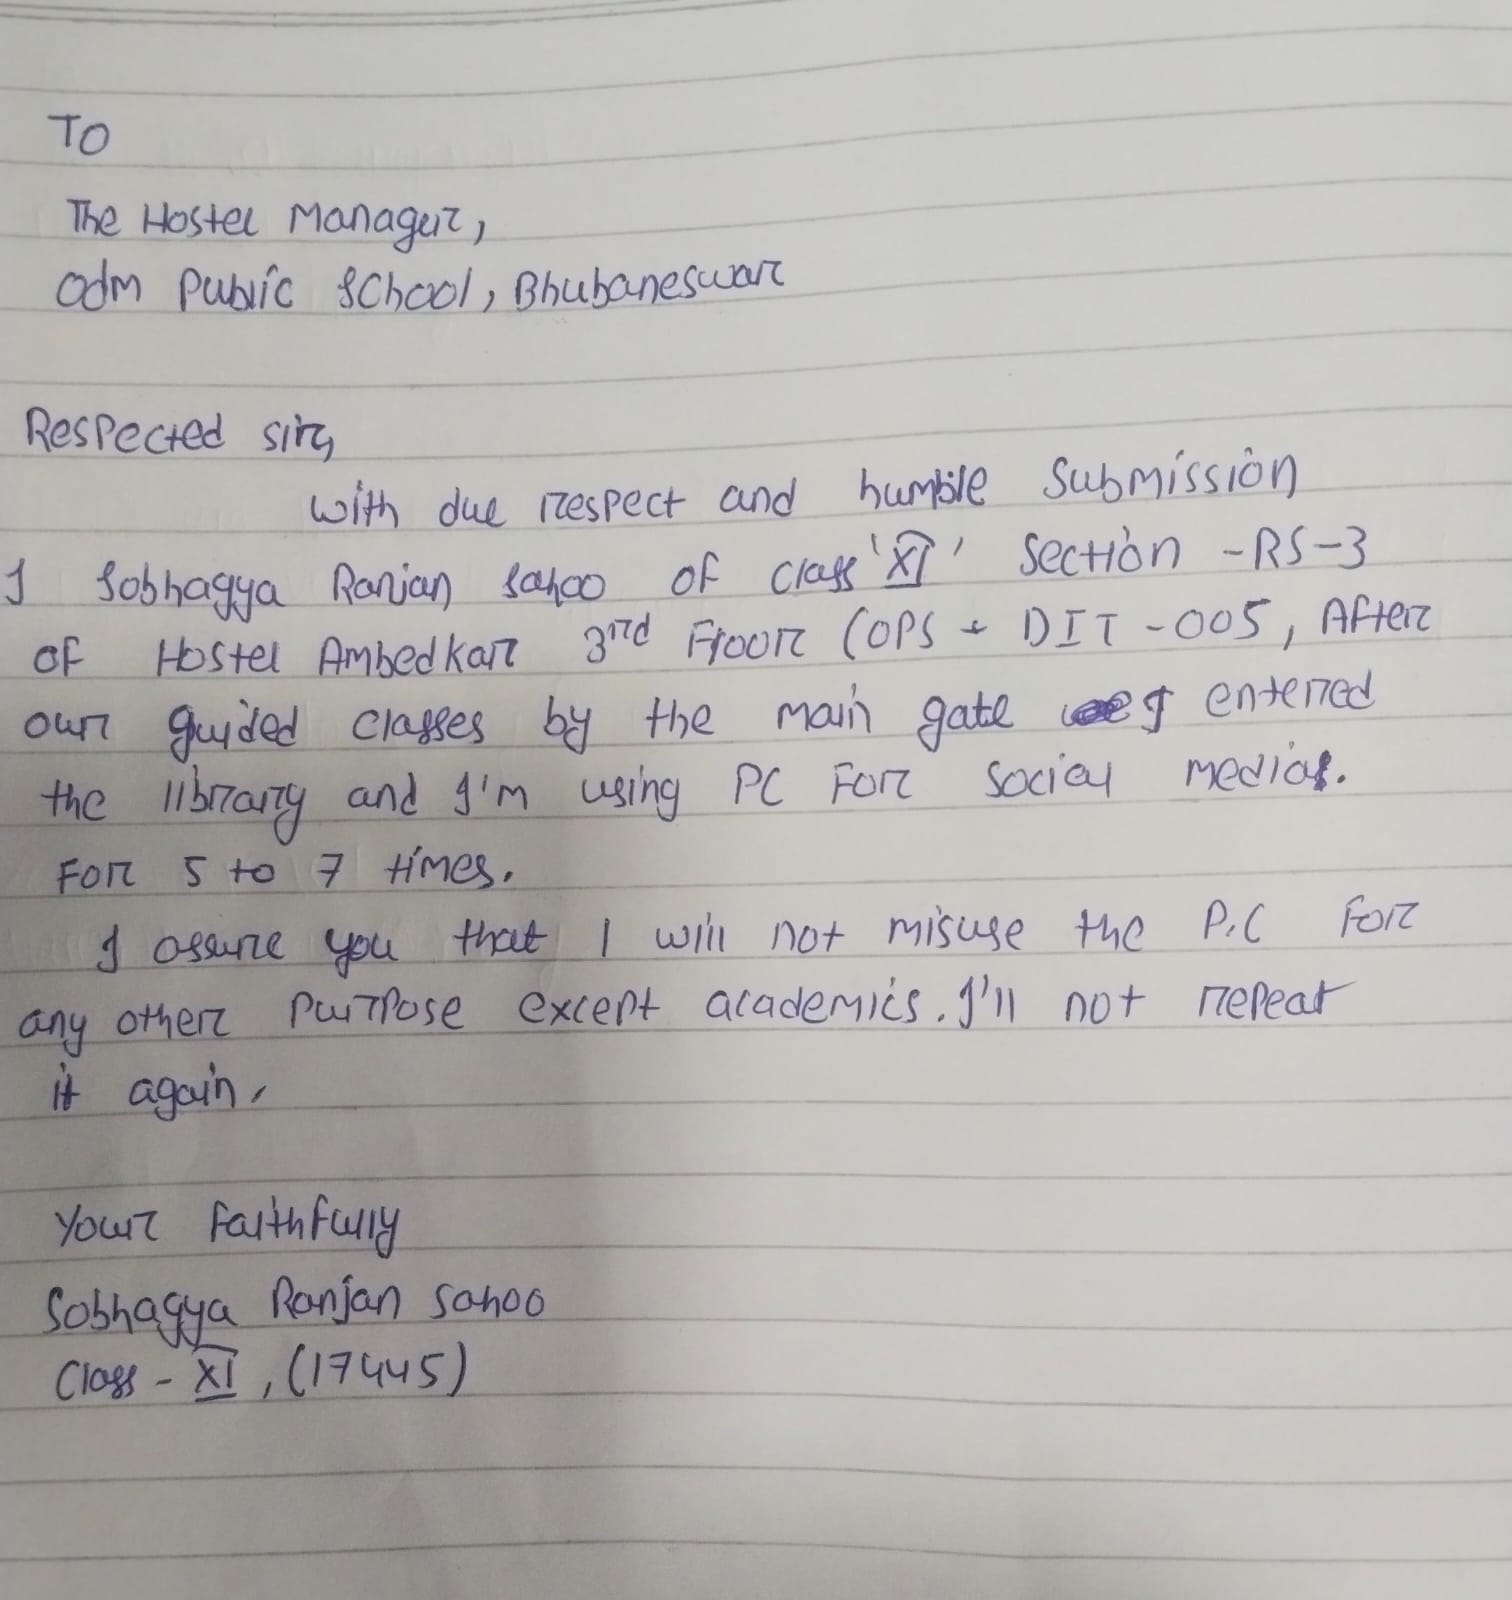 To
The Hostel Manager,
Odm Public School, Bhubaneswar
Respected sir,
with due respect and humble submission
I Sobhagya Ranjan Sahoo of class 'XI' section - RS-3
of Hostel Ambedkar 3rd Floor (OPS + DIT - 005, After
our guided classes by the main gate I entered
the library and I'm using PC For social media.
For 5 to 7 times.
I assure you that I will not misuse the P.C For
any other purpose except academics. I'll not repeat
it again.
Your Faithfully
Sobhagya Ranjan Sahoo
Class - XI, (17445)